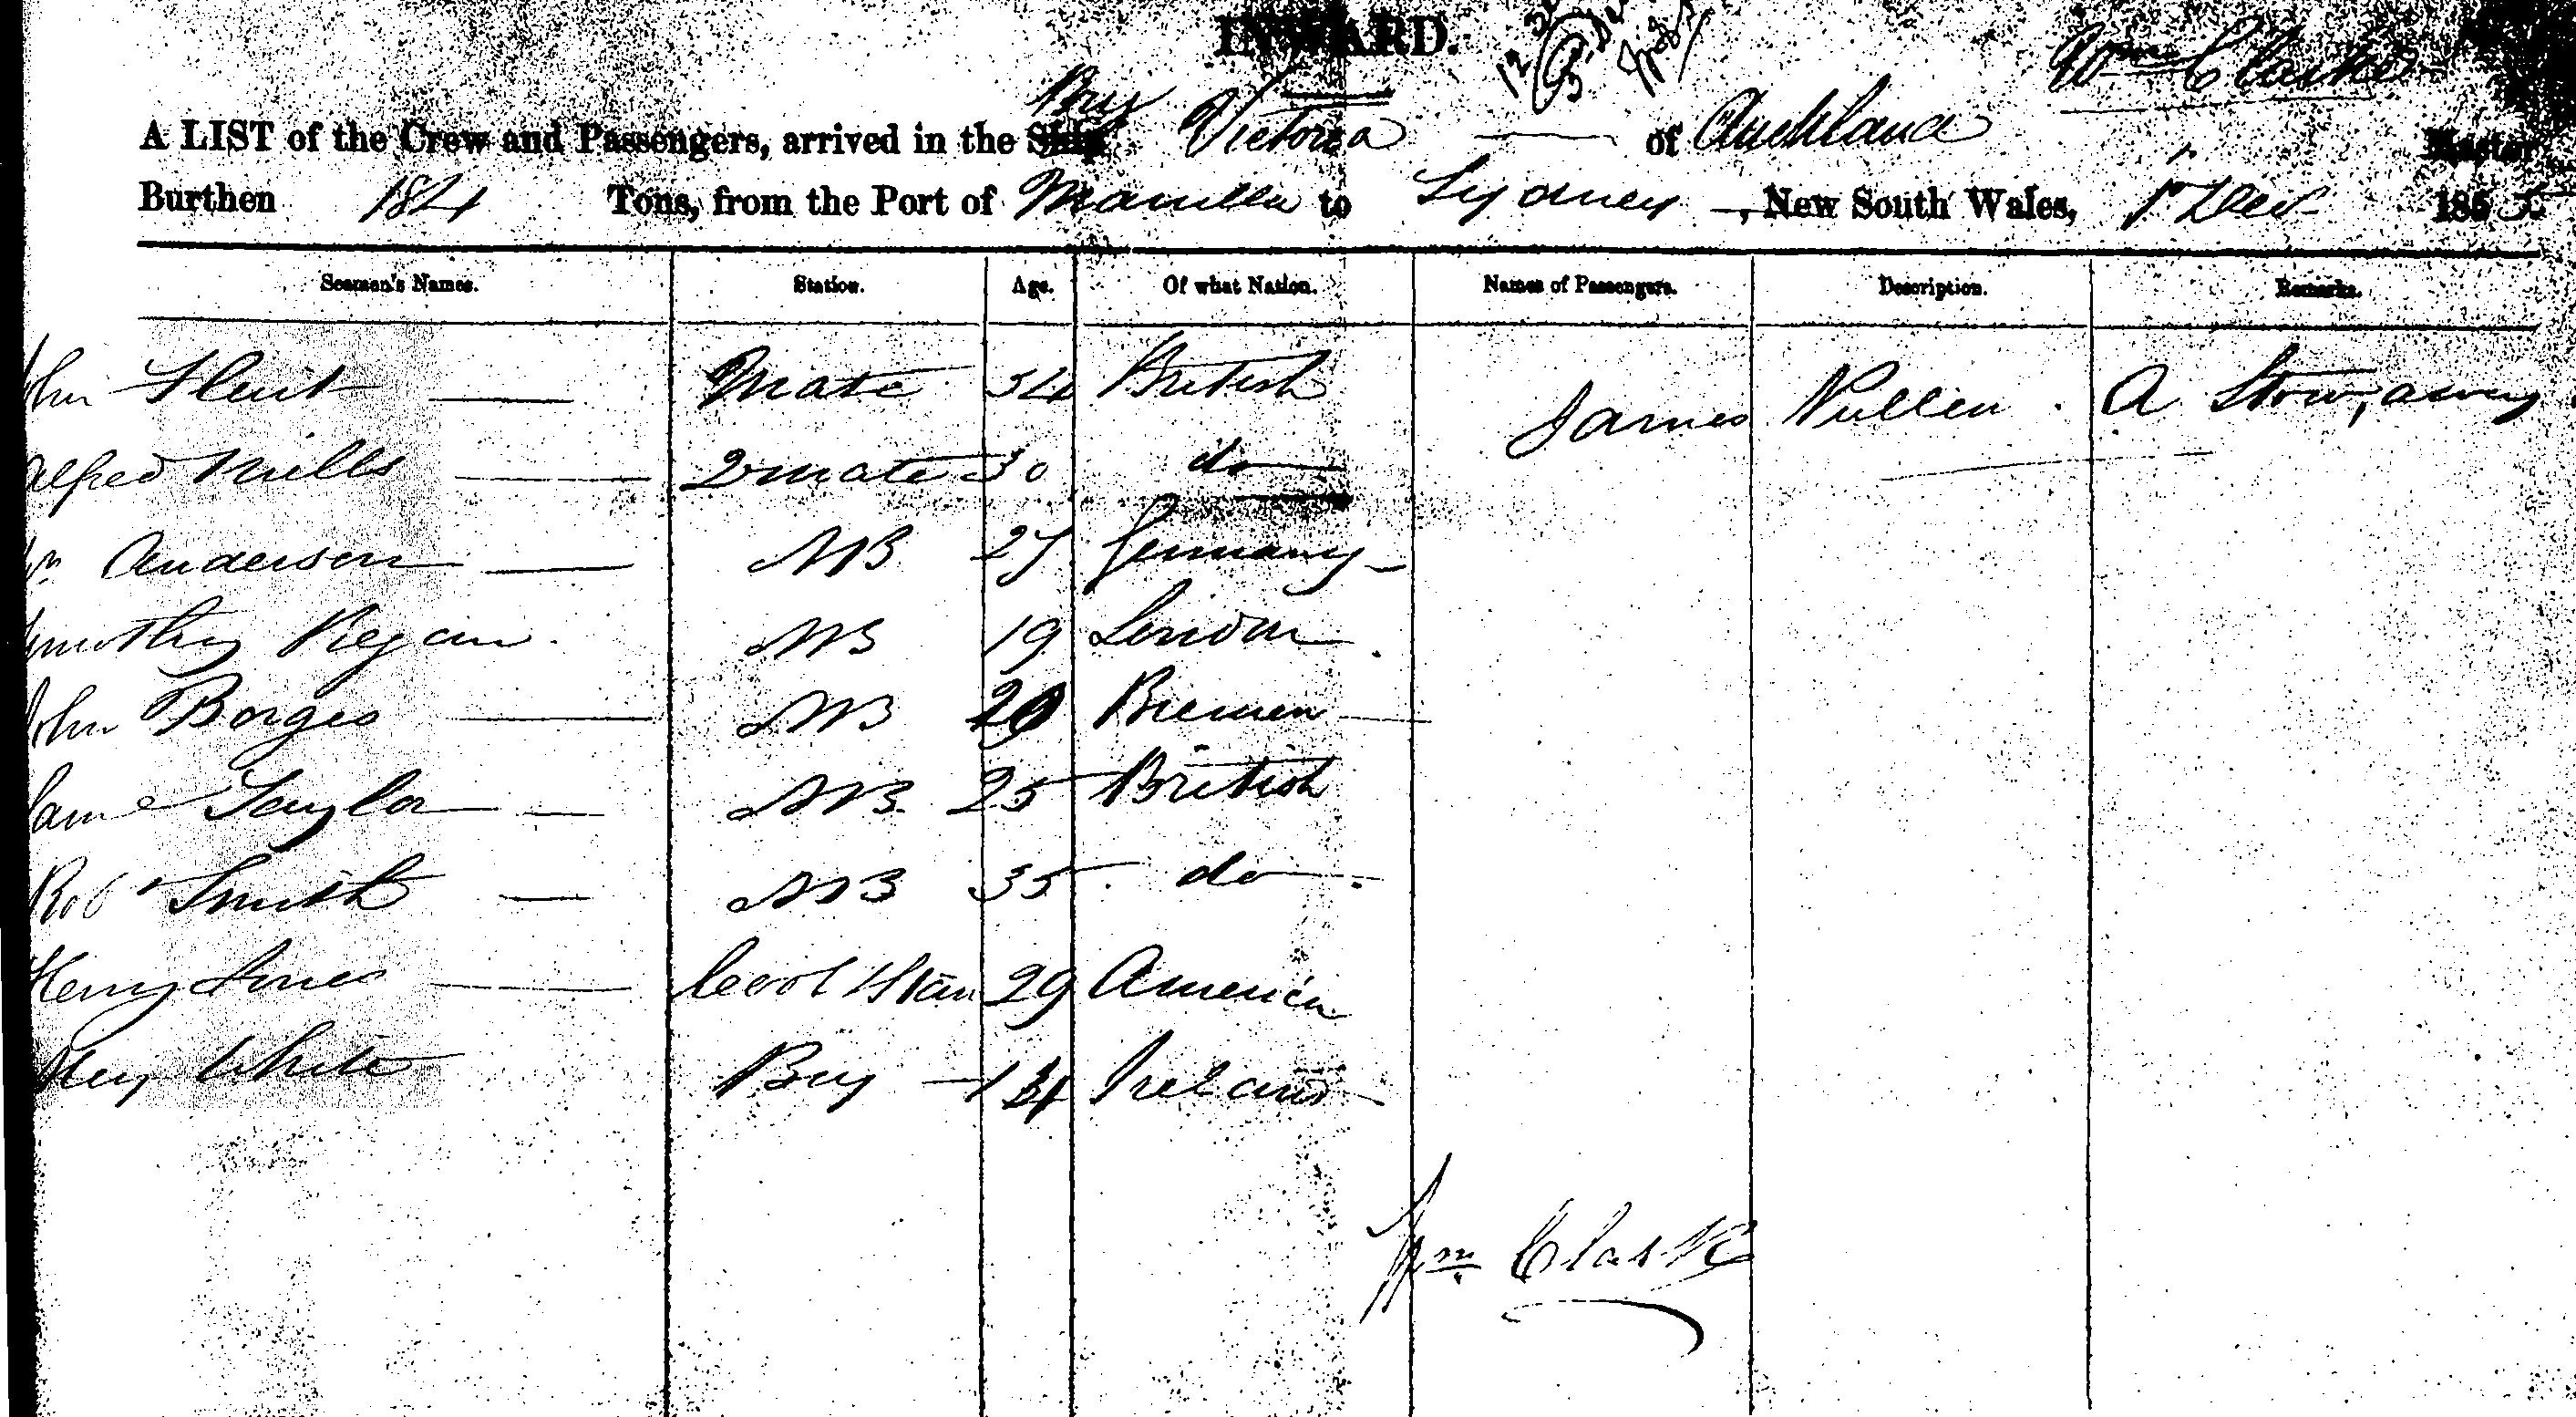 INWARD.
Wm Clarke
Brig
A LIST of the Crew and Passengers, arrived in the Ship Victoria of Auckland Master
Burthen 184 Tons, from the Port of Manilla to Sydney, New South Wales, 1st Dec 1855
Seamen's Names. Station. Age. Of what Nation. Names of Passengers. Description. Remarks.
John Flint Mate 34 British James Nullen. A Stow,away
Alfred Mills 2 mate 30 do
Wm Anderson AB 27 Germany
Timothy Regan. AB 19 London
John Borges AB 20 Bremen
James Taylor AB 25 British
Robt Smith AB 35 do
Henry Jones Cook & Stew 29 America
Hey White Boy 14 Ireland
Wm Clark